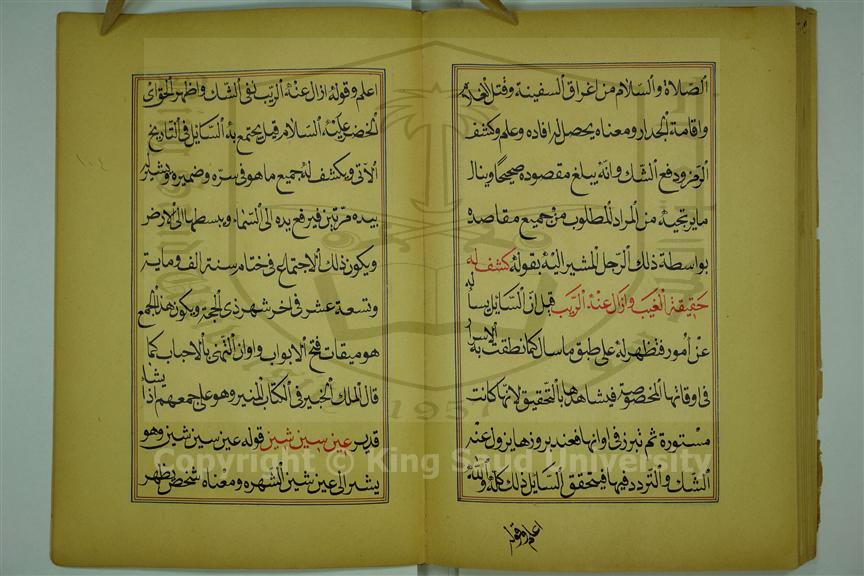 الصلاة والسلام من اغراق السفينة وقتل الغلام
واقامة الجدار ومعناه يحصل له افاده وعلم وكشف
الرمز ودفع الشك وانه يبلغ مقصوده صحيحا وينال
ما يرتجيه من المراد المطلوب من جميع مقاصده
بواسطة ذلك الرجل المشير اليه بقوله كشف له
حقيقة الغيب وازال عنه الريب قيل ان السائل يسأله
عن أمور فتظهر له على طبق ما سال كما نطقت به الاسرار
في اوقاتها المخصوصة فيشاهدها بالتحقيق لانها كانت
مستورة ثم تبرز في اوانها فعند بروزها يزول عنه
الشك والتردد فيها فيتحقق السايل ذلك كله والله
اعلم وقوله
اعلم وقوله ازال عنه الريب نفى الشك واظهر الحق اى
الخضر عليه السلام قيل يجتمع به السايل في التاريخ
الآتي ويكشف له جميع ما هو في سره وضميره ويشير له
بيده مرتين فيرفع يده الى السماء ويبسطها الى الارض
ويكون ذلك الاجتماع في ختام سنة الف ومايه
وتسعة عشر في اخر شهر ذي الحجة ويكون هذا الجمع
هو ميقات فتح الابواب واوان التمنى بالاجاب كما
قال الملك الخبير في الكتاب المنير وهو على جمعهم اذا يشاء
قدير عين سين شين قوله عين سين شين وهو
يشير الى عين شين الشهره ومعناه شخص يظهر
١٠٤
1957
Copyright © King Saud University